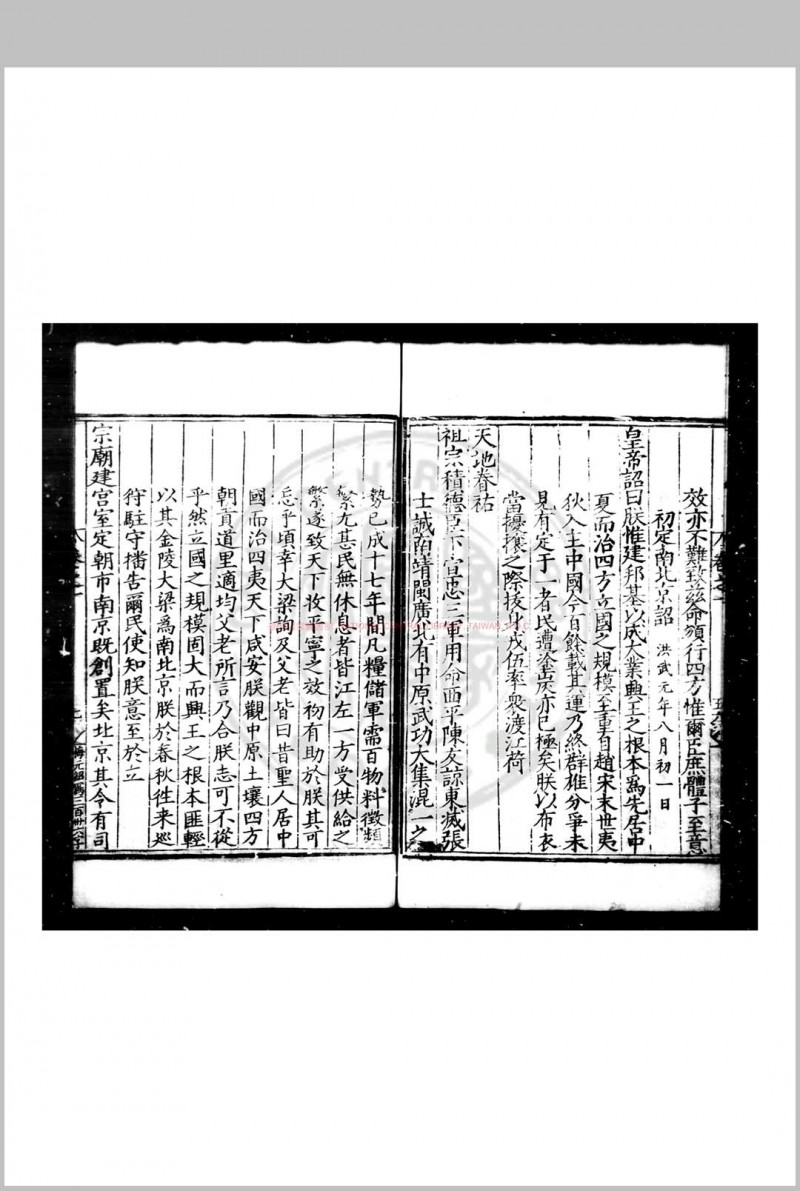 效亦不難致茲命頒行四方惟爾臣庶體予至意
初定南北京詔 洪武元年八月初一日
皇帝詔曰朕惟建邦基以成大業興王之根本爲先居中
夏而治四方立國之規模至重自趙宋末世夷
狄入主中國今百餘載其運乃終群雄分爭未
見有定于一者民遭塗炭亦已極矣朕以布衣
當擾攘之際拔身戎伍率衆渡江荷
天地眷祐
祖宗積德臣下宣忠三軍用命西平陳友諒東滅張
士誠南靖閩廣北有中原武功大集混一之
勢已成十七年間凡糧儲軍需百物科徵類
繁尤甚民無休息者皆江左一方受供給之
繁遂致天下收平寧之效初有助於朕其可
忘乎頃幸大梁詢及父老皆曰昔聖人居中
國而治四夷天下咸安朕觀中原土壤四方
朝貢道里適均父老所言乃合朕志可不從
乎然立國之規模固大而興王之根本匪輕
以其金陵大梁爲南北京朕於春秋徃來巡
狩駐守播告爾民使知朕意至於立
宗廟建宮室定朝市南京既創置矣北京其令有司
卷之一